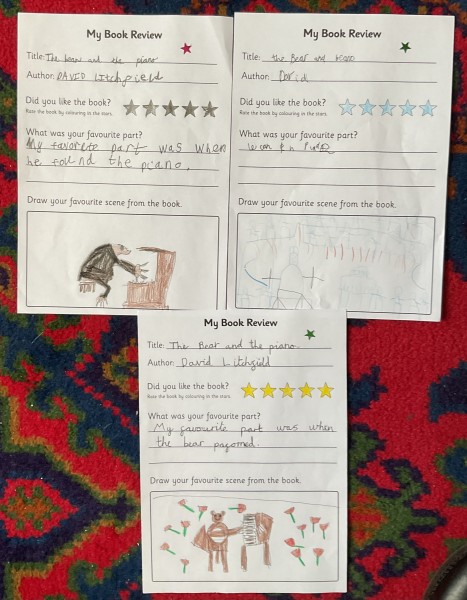 My Book Review
Title: The bear and the piano
Author: DAVID Litchfield
Did you like the book?
Rate the book by colouring in the stars.
What was your favourite part?
My favorite part was when
he found the piano.
Draw your favourite scene from the book.
My Book Review
Title: the Bear and
Author: David
Did you like the book?
Rate the book by colouring in the stars.
What was your favourite part?
Draw your favourite scene from the book.
My Book Review
Title: The Bear and the piano
Author: David Litchfield
Did you like the book?
Rate the book by colouring in the stars.
What was your favourite part?
My favourite part was when
the bear pagomed.
Draw your favourite scene from the book.